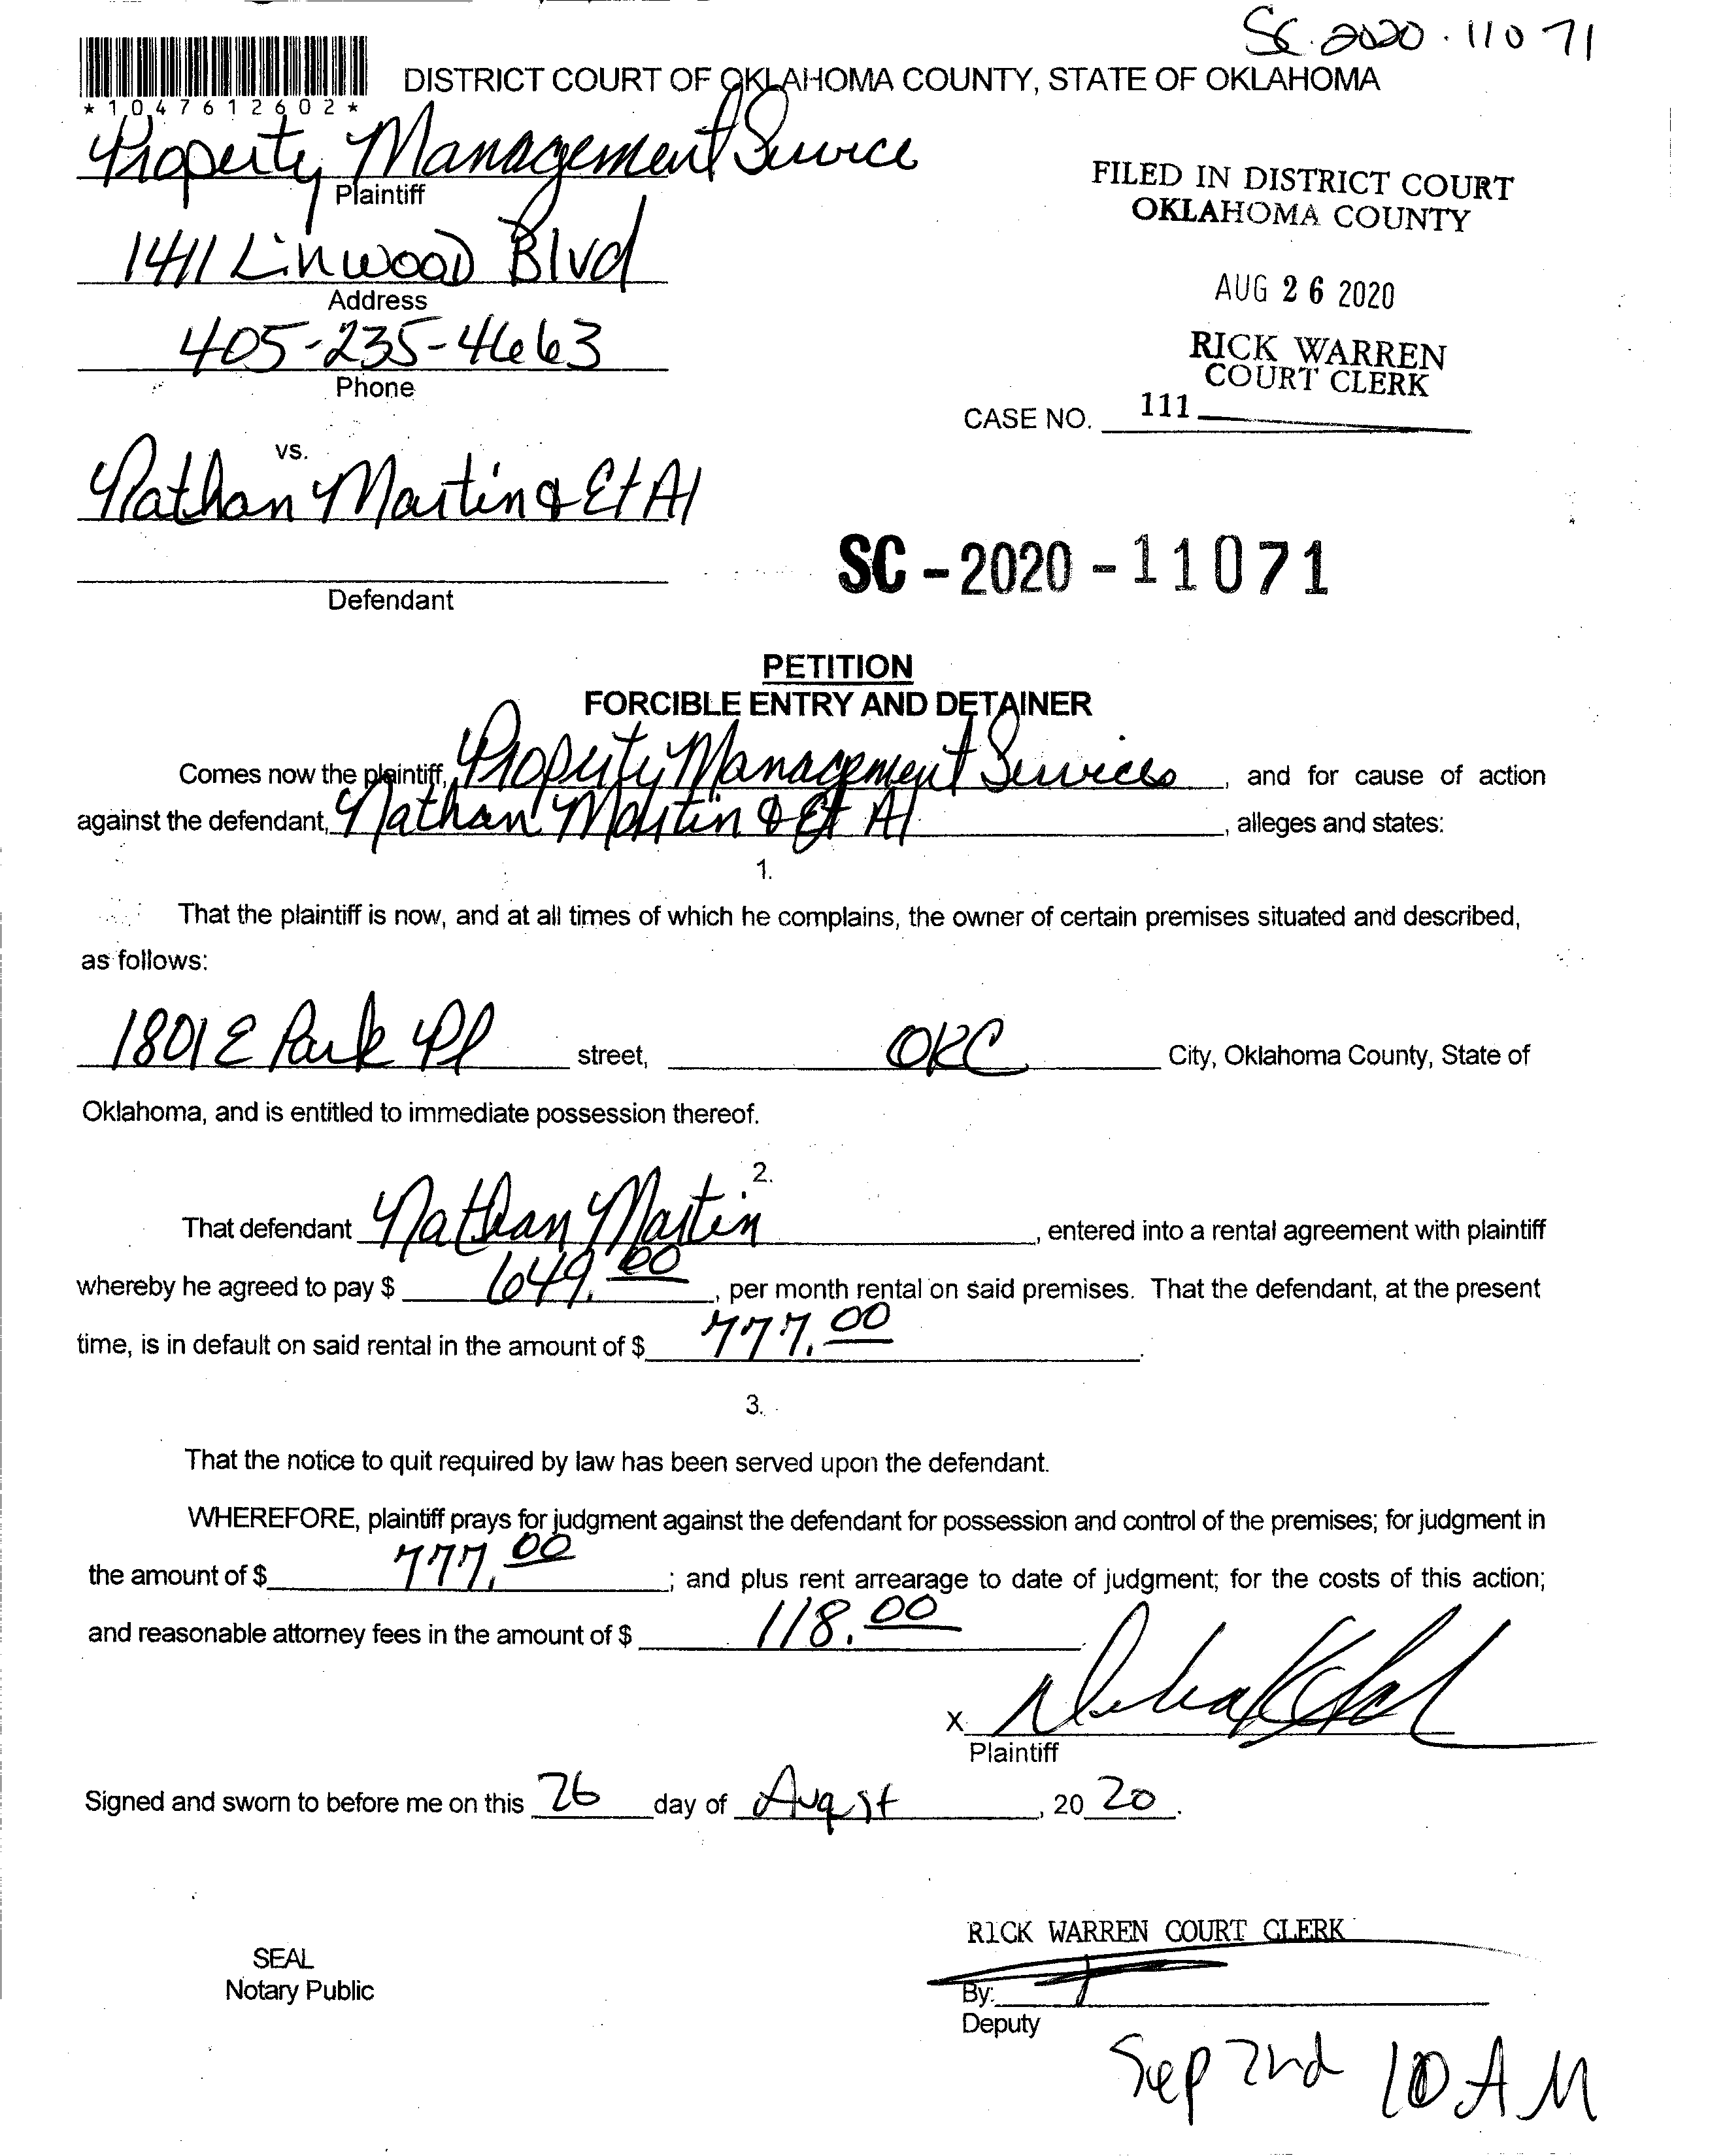 SC-2020-11071
*1047612602*
DISTRICT COURT OF OKLAHOMA COUNTY, STATE OF OKLAHOMA
Property Management Service
Plaintiff
1411 Linwood Blvd
Address
405-235-4663
Phone
FILED IN DISTRICT COURT
OKLAHOMA COUNTY
AUG 26 2020
RICK WARREN
COURT CLERK
CASE NO. 111
vs.
Nathan Martin & Et Al
Defendant
SC-2020-11071
PETITION
FORCIBLE ENTRY AND DETAINER
Comes now the plaintiff, Property Management Services, and for cause of action
against the defendant, Nathan Martin & Et Al, alleges and states:
1.
That the plaintiff is now, and at all times of which he complains, the owner of certain premises situated and described,
as follows:
1801 E Park Pl street, OKC City, Oklahoma County, State of
Oklahoma, and is entitled to immediate possession thereof.
2.
That defendant Nathan Martin, entered into a rental agreement with plaintiff
whereby he agreed to pay $ 649.00, per month rental on said premises. That the defendant, at the present
time, is in default on said rental in the amount of $ 777.00.
3.
That the notice to quit required by law has been served upon the defendant.
WHEREFORE, plaintiff prays for judgment against the defendant for possession and control of the premises; for judgment in
the amount of $ 777.00; and plus rent arrearage to date of judgment; for the costs of this action;
and reasonable attorney fees in the amount of $ 118.00.
X
Plaintiff
Signed and sworn to before me on this 26 day of Augst, 20 20.
RICK WARREN COURT CLERK
SEAL
Notary Public
By:
Deputy
Sep 2nd 10 AM